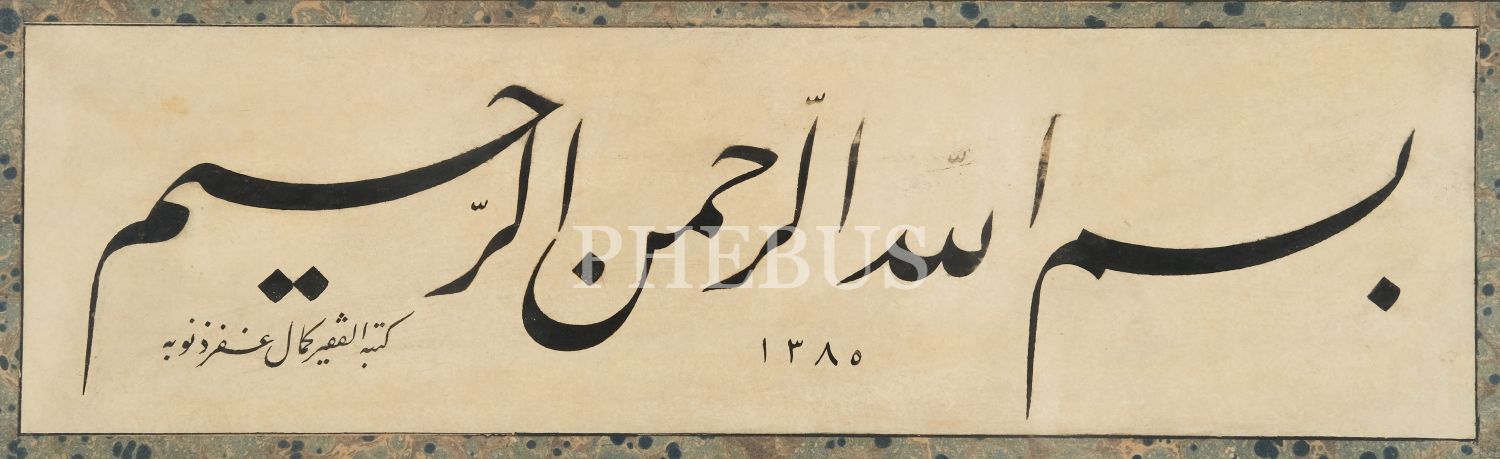 بسم الله الرحمن الرحيم
١٣٨٥
كتبه الفقير كمال غفر ذنوبه
PHEBUS